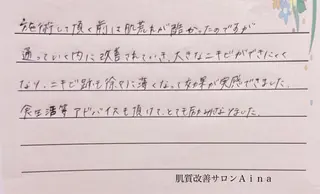 施術して頂く前は肌荒れが酷かったのですが
通っていく内に改善されていき、大きなニキビができにくく
なり、ニキビ跡も徐々に薄くなって効果が実感できました。
食生活等アドバイスも頂けて、とても励みになりました。
肌質改善サロンAina